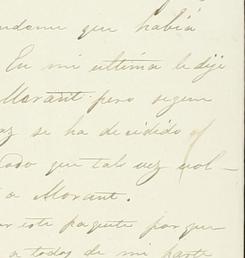 ndome que había
En mi última le dije
Morant pero segun
az se ha decidido
que tal vez vol-
a Morant.
ar este paquete porque
a todos de mi parte